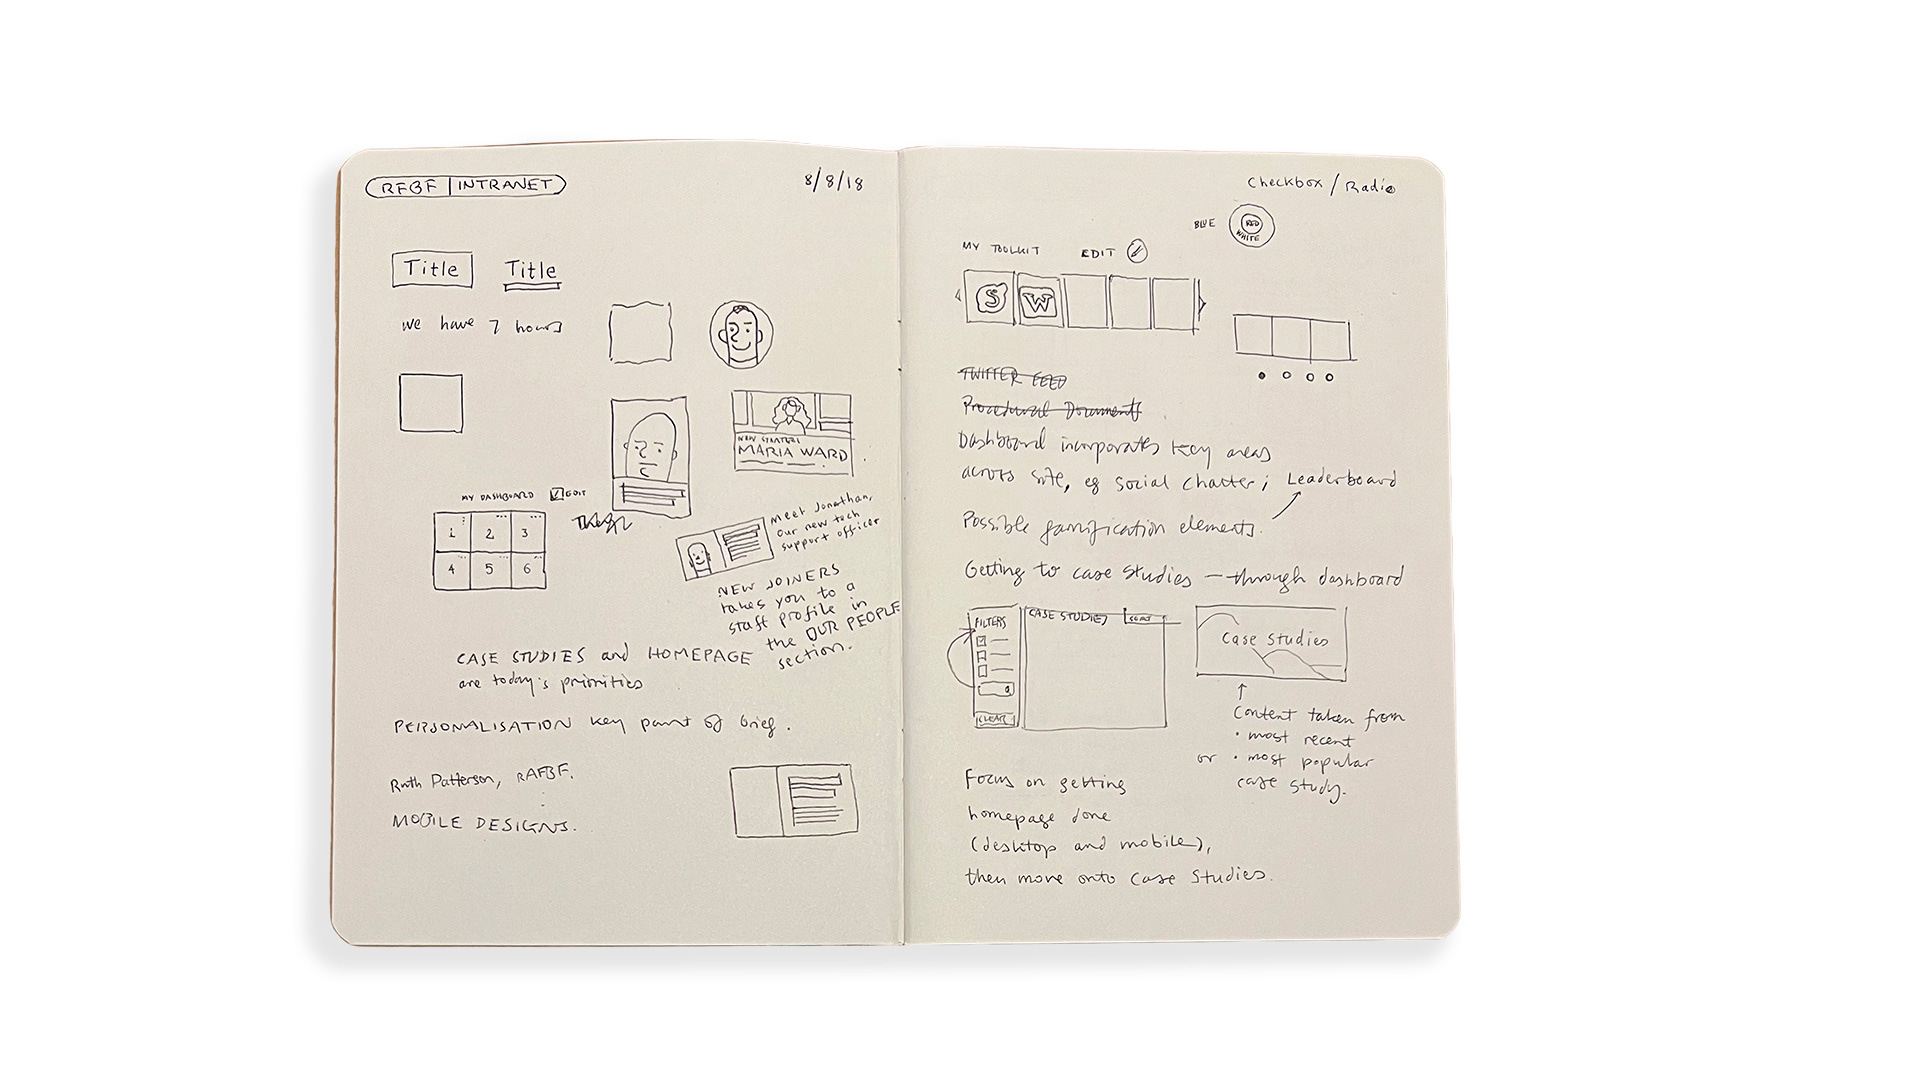 RFBF | INTRANET
8/8/18
Title
Title
we have 7 hours
NEW STARTERS
MARIA WARD
MY DASHBOARD
EDIT
1 2 3
4 5 6
Meet Jonathan,
our new tech
support officer
NEW JOINERS
takes you to a
staff profile in
the OUR PEOPLE
section.
CASE STUDIES and HOMEPAGE
are today's priorities
PERSONALISATION key part of brief.
Ruth Patterson, RAFBF.
MOBILE DESIGNS.
Checkbox / Radio
BLUE
RED
WHITE
MY TOOLKIT
EDIT
S W
TWITTER FEED
Procedural Documents
Dashboard incorporates key areas
across site, eg social chatter; Leaderboard
Possible gamification elements.
Getting to case studies — through dashboard
FILTERS
CASE STUDIES
SORT
CLEAR
Case Studies
Content taken from
• most recent
or • most popular
case study.
Focus on getting
homepage done
(desktop and mobile),
then move onto Case Studies.